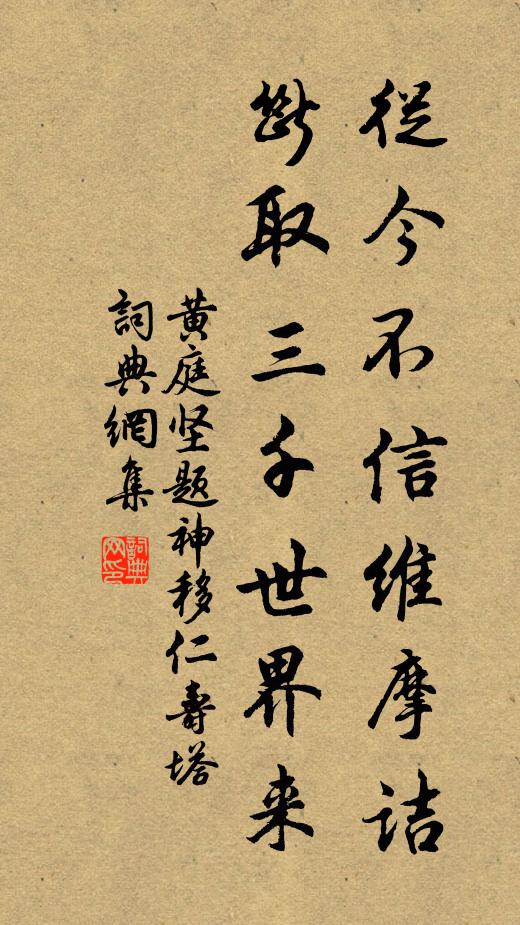 從今不信維摩詰
斷取三千世界来
黄庭坚题神移仁壽塔
詞典網集
詞典網印